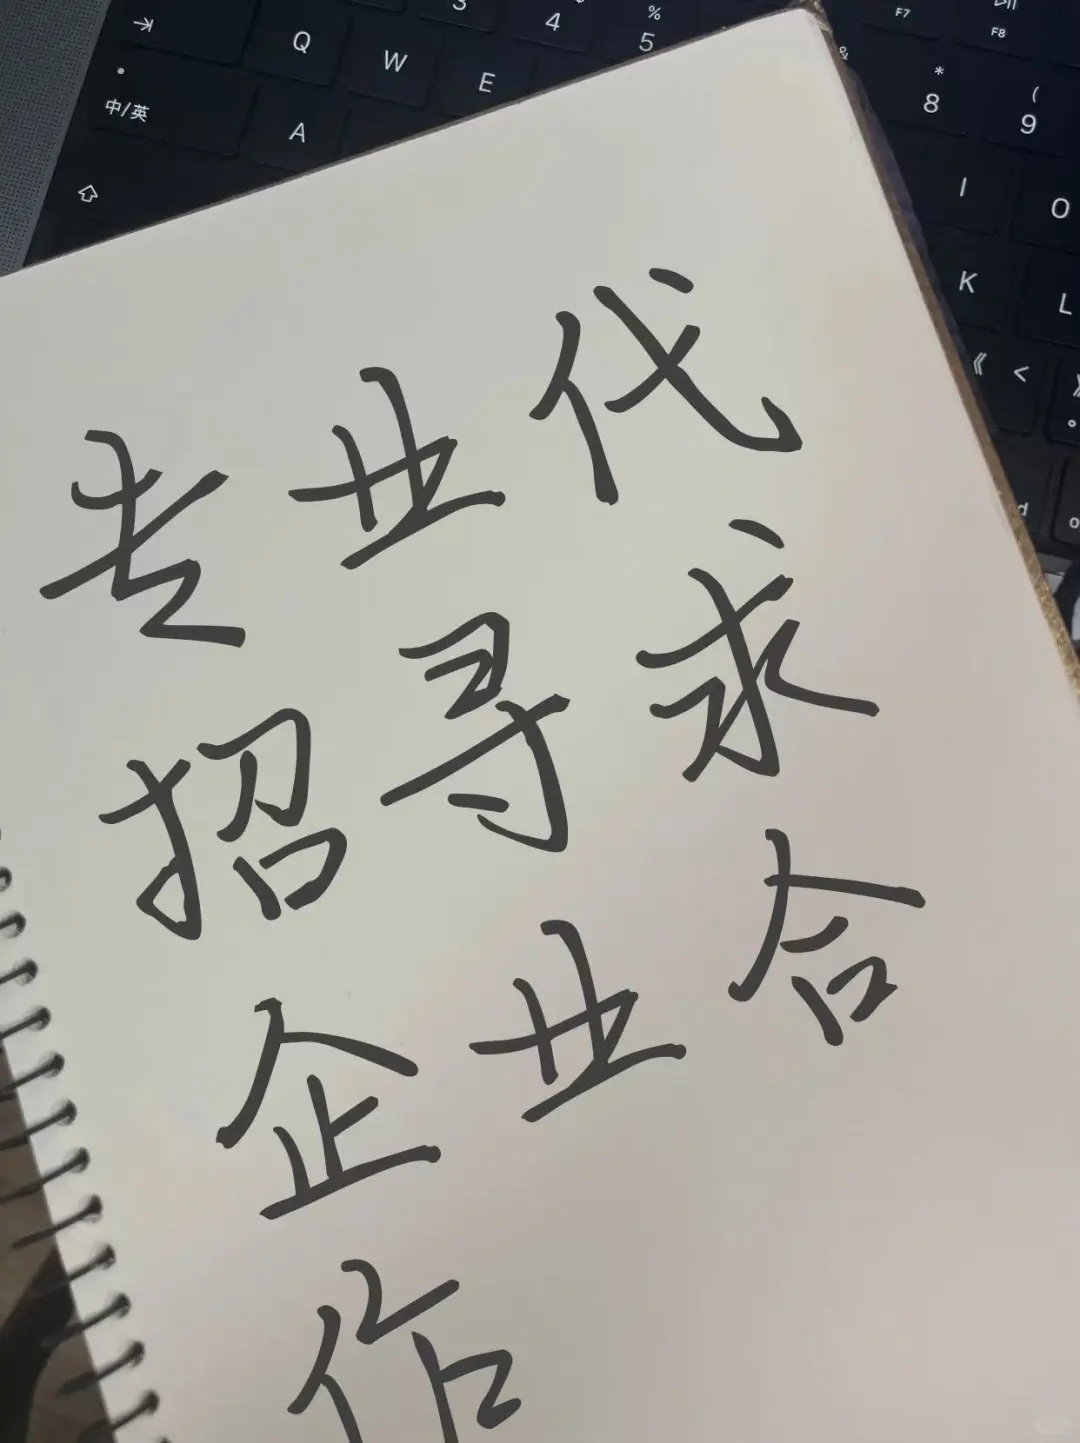 3 4 % 5 F7 F8
Q W E & * 8 ( 9
中/英 A I O
K L
《 <
专业代
招寻求
企业合
作